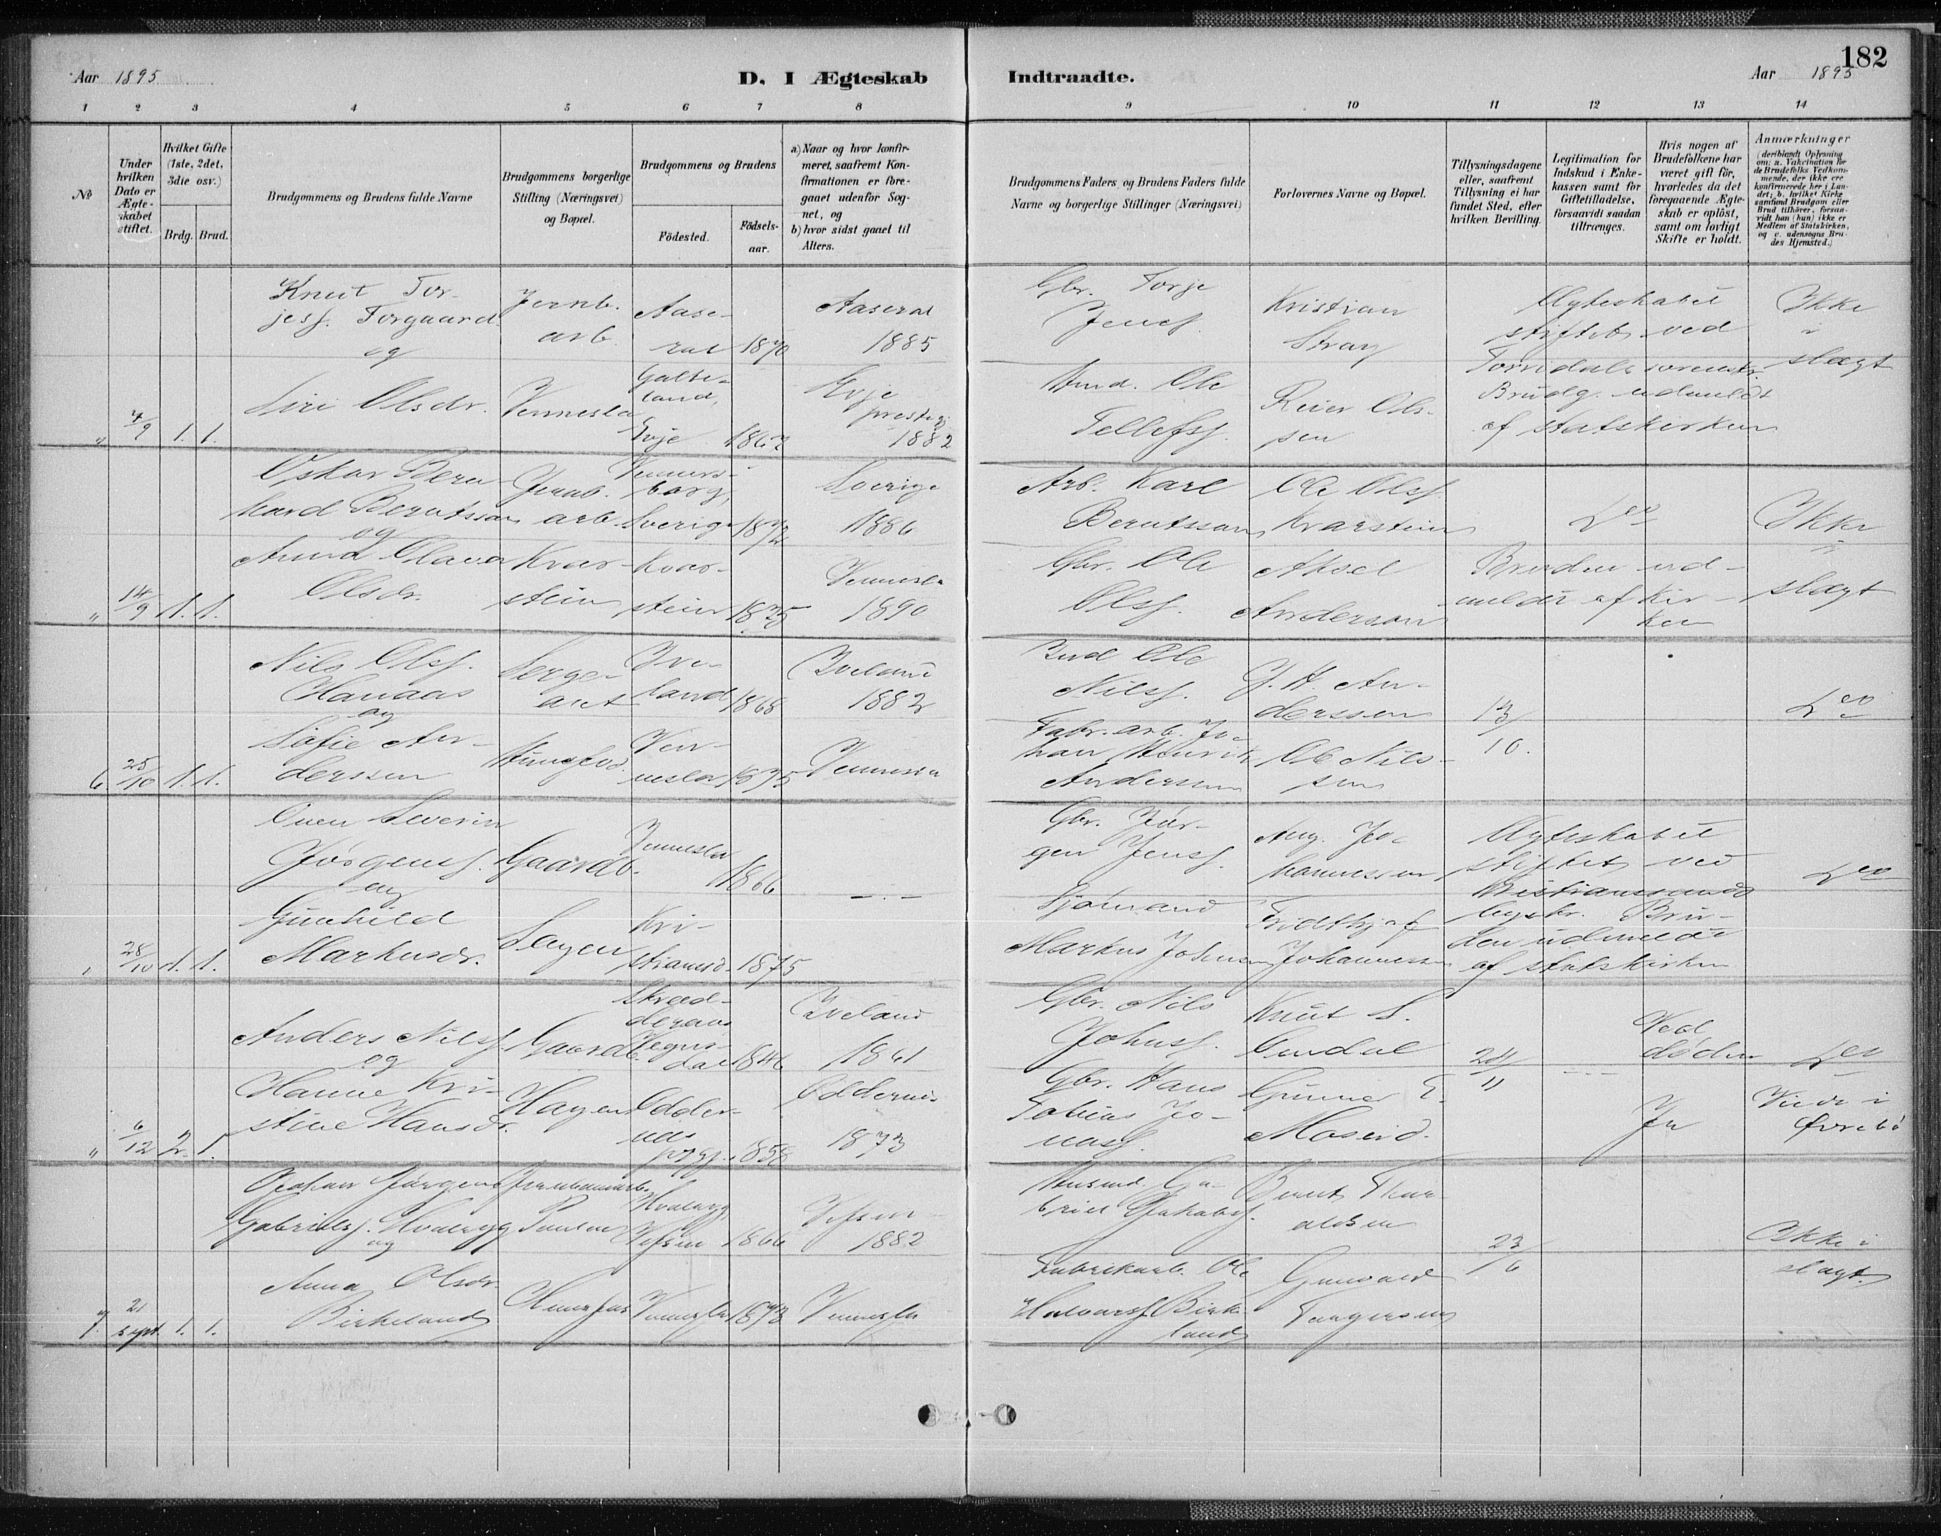 Aar 1895
D. I Ægteskab
Indtraadte.
Aar 1895
182
1 2 3 4 5 6 7 8 9 10 11 12 13 14
№
Under hvilken Dato er Ægteskabet stiftet.
Hvilket Gifte (1ste, 2det, 3die osv.)
Brdg. Brud.
Brudgommens og Brudens fulde Navne
Brudgommens borgerlige Stilling (Næringsvei) og Bopæl.
Brudgommens og Brudens
Fødested.
Fødselsaar.
a) Naar og hvor konfirmeret, saafremt Konfirmationen er foregaaet udenfor Sognet, og
b) hvor sidst gaaet til Alters.
Brudgommens Faders og Brudens Faders fulde Navne og borgerlige Stillinger (Næringsvei)
Forlovernes Navne og Bopæl.
Tillysningsdagene eller, saafremt Tillysning ei har fundet Sted, efter hvilken Bevilling.
Legitimation for Indskud i Enkekassen samt for Giftetilladelse, forsaavidt saadan tiltrænges.
Hvis nogen af Brudefolkene har været gift før, hvorledes da det foregaaende Ægteskab er opløst, samt om lovligt Skifte er holdt.
Anmærkninger
(deriblandt Oplysning om: a. Vakcination for de Brudefolks Vedkommende, der ikke ere konfirmerede her i Landet; b. hvilket Kirkesamfund Brudgom eller Brud tilhører, forsaavidt han (hun) ikke er Medlem af Statskirken, og c. udensogns Brudes Hjemsted.)
Knut Torjesf. Torgaard
og
Jernb. arb.
Aaseral 1870
Aaseral 1885
Gbr. Torje Jensf.
Kristian Stray
Ægteskabet stiftet ved
Ikke i slægt
" 4/9 1. 1.
Siri Olsdr.
Vennesla
Evje 1862
Evje prestegj 1882
Ole Tellefsf.
Reier Olsen
Brudg. udmeldt af statskirken
Oskar Bernhard Berntsson
og
Jernb. arb.
Vennersborg, Sverige 1872
Sverige 1886
Arb. Karl Berntsson
Ole Olsf. Kvarstein
Do
Ikke i slægt
" 14/9 1. 1.
Olava Olsdr.
Kvarstein
Kvarstein 1875
Vennesla 1890
Gbr. Ole Olsf.
Aksel Anderson
Bruden udmeldt af Kirken
Nils Olsf. Hanaas
og
Sergeant
Iveland 1868
Iveland 1882
Ole Nilsf.
J. H. Anderssen
13/10.
Do
6 25/10 1. 1.
Sofie Anderssen
Hunsfos
Vennesla 1875
Vennesla
Fabr. arb. Johan Henrik Andersen
Ole Nilssen
Oven Severin Jørgensf.
og
Gaardb.
Vennesla 1866
– . –
Gbr. Jørgen Jensf.
Aug. Johannessen
Ægteskabet stiftet ved Kristianssands
Do
" 28/10 1. 1.
Gunhild Markusdr.
Kristianssd. 1875
Sjømand Markus Johnsen
Fridthjof Johannessen
Bruden udmeldt af statskirken
Anders Nilsf.
og
Gaardb.
Skredderaas Vegusdal 1846
Iveland 1861
Gbr. Nils Johnsf.
Knut S.
24/11
Ved døden
Do
" 6/12 2. 1.
Hanne Kristine Hansdr.
Hagen
Oddernes prgj. 1858
Oddernes 1873
Gbr. Hans Tobias Jonasf.
Gunner E. Moseid.
Ja
Viede i Øvrebø
Johan Jørgen Gabrielsf. Hvalryg
og
Hvalryg Vefsen 1866
Vefsen 1882
Husmd. Gabriel Jakobsf.
Bernt Tharaldsen
23/6
Ikke i slægt.
7. 21 sept. 1. 1.
Anna Olsdr. Birkeland
Hunsfos
Vennesla 1873
Vennesla
Fabrikarb. Ole Halvorsf. Birkeland
Gunvald Torgersen